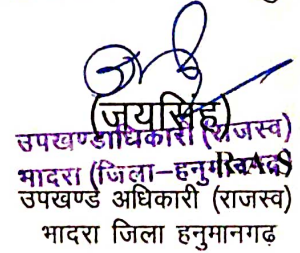 (जयसिंह)
उपखण्डाधिकारी (राजस्व)
भादरा (जिला-हनुमानगढ़)
RAS
उपखण्ड अधिकारी (राजस्व)
भादरा जिला हनुमानगढ़